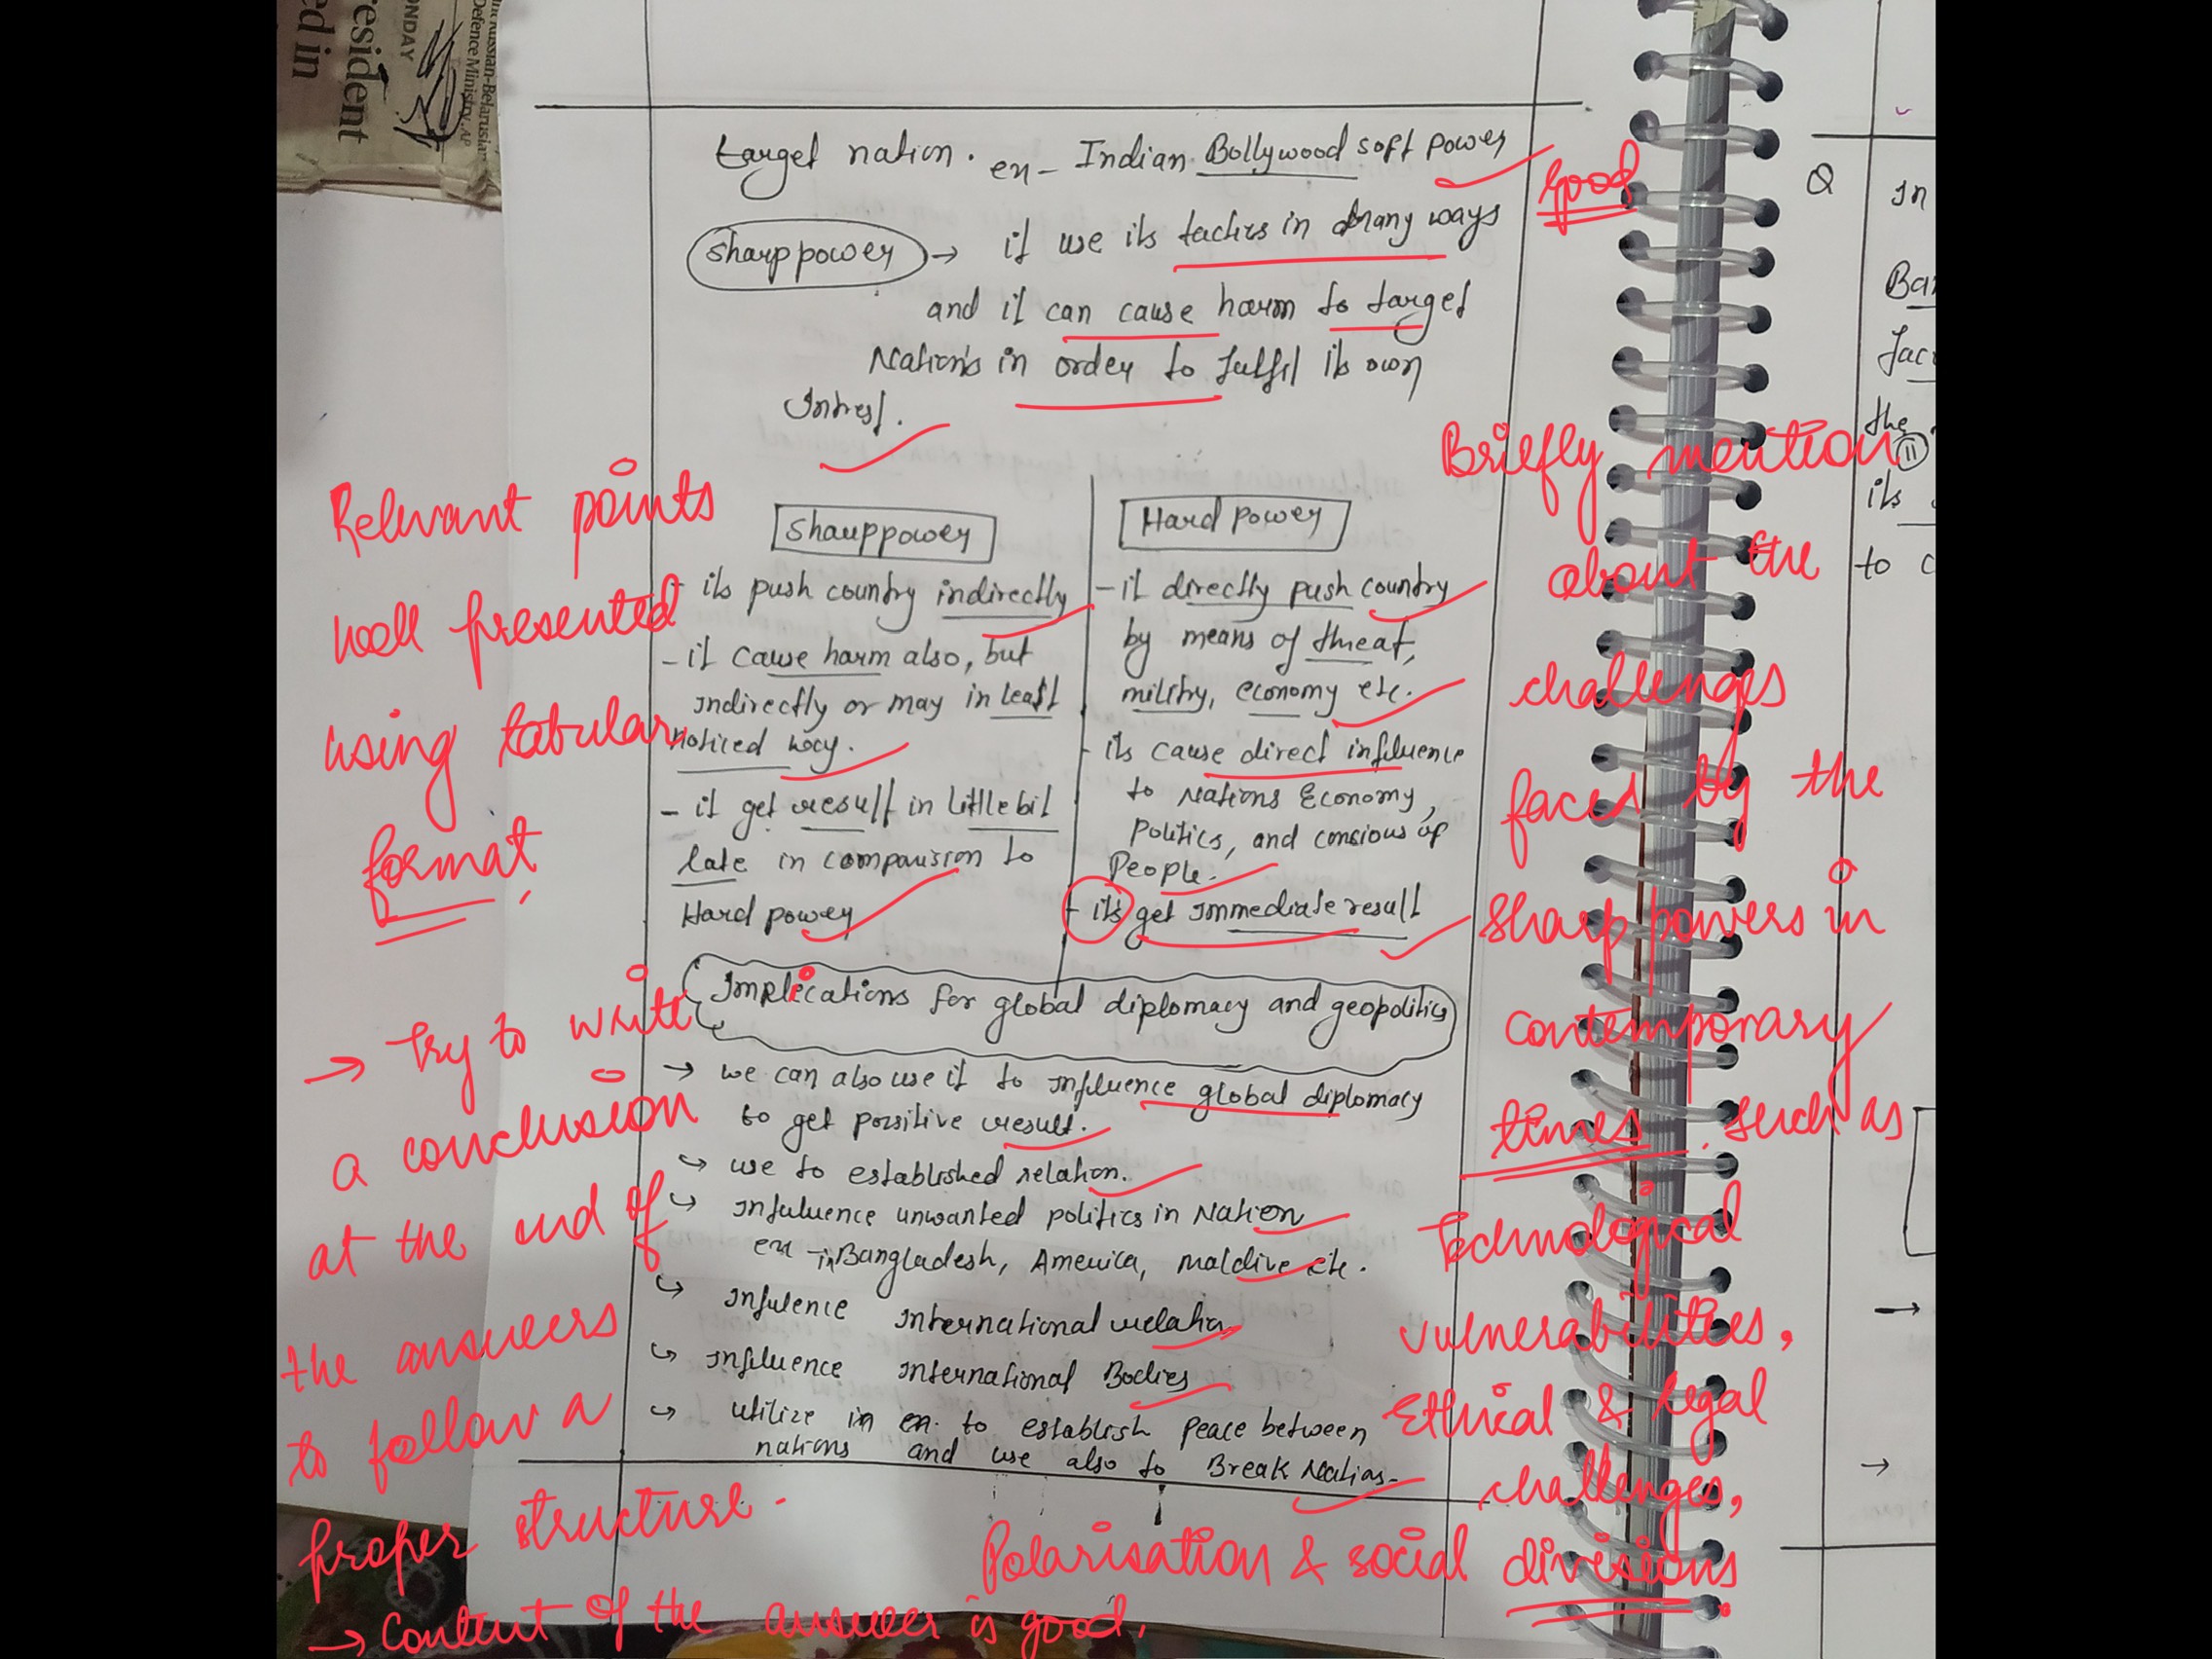 resident
ed in
ONDAY
Russian-Belarusian
Defence Ministry. AP
target nation. ex- Indian Bollywood soft power
good
sharppower → it use its tactics in many ways
and it can cause harm to target
Nation's in order to fulfil its own
Intrest.
Sharppower
- its push country indirectly
- it cause harm also, but
indirectly or may in least
noticed way.
- it get result in little bit
late in comparision to
Hard power
Hard power
- it directly push country
by means of threat,
militry, economy etc.
- its cause direct influence
to Nations Economy,
politics, and consious of
People.
- its get immediate result
Implications for global diplomacy and geopolitics
→ we can also use it to influence global diplomacy
to get possitive result.
↪ use to established relation.
↪ Infuluence unwanted politics in Nation
ex - in Bangladesh, America, maldive etc.
↪ Infulence International relation
↪ Influence International Bodies
↪ utilize in en. to establish peace between
nations and use also to Break Nations.
Relevant points
well presented
using tabular
format,
→ Try to write
a conclusion
at the end of
the answers
to follow a
proper structure.
→ Content of the answer is good,
Briefly mention
about the
challenges
faced by the
sharp powers in
contemporary
times, such as
Technological
vulnerabilities,
Ethical & legal
challenges,
Polarisation & social divisions
Q
In
Ban
Fac
the
11
its
to c
→
→